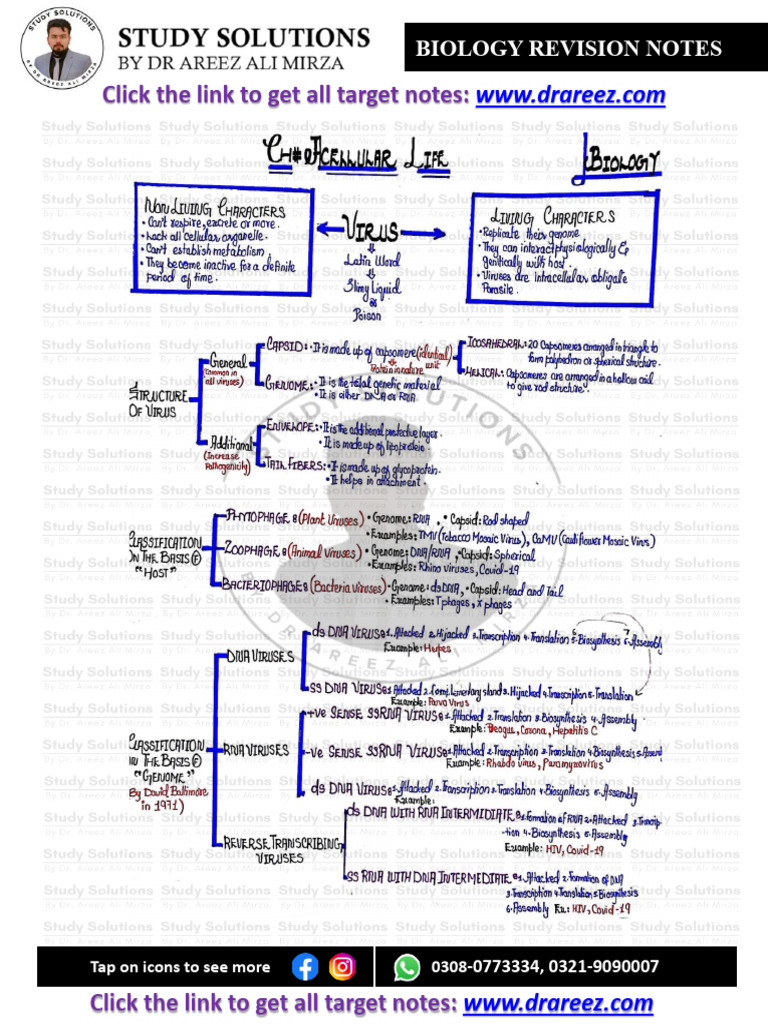 STUDY SOLUTIONS
BY DR AREEZ ALI MIRZA
STUDY SOLUTIONS
BY DR AREEZ ALI MIRZA
BIOLOGY REVISION NOTES
Click the link to get all target notes: www.drareez.com
ACELLULAR LIFE
BIOLOGY
NON LIVING CHARACTERS
• Can't respire, excrete or move.
• Lack all cellular organelle.
• Can't establish metabolism
• They become inactive for a definite
period of time.
VIRUS
Latin Word
Slimy Liquid
or
Poison
LIVING CHARACTERS
• Replicate their genome
• They can interact physiologically &
genitically with host.
• Viruses are intracellular obligate
Parasite.
STRUCTURE
OF VIRUS
General
(Common in
all viruses)
CAPSID: • It is made up of capsomere (identical
unit
Protein in nature
ICOSAHEDRAL: 20 Capsomeres arranged in triangle to
form polyhedron or spherical structure.
HELICAL: Capsomeres are arranged in a hollow coil
to give rod structure.
GENOME: • It is the total genetic material
• It is either DNA or RNA.
Additional
(Increase
Pathogenicity)
ENVELOPE: • It is the additional protective layer.
• It is made up of lipoprotein
TAIL FIBERS: • It is made up of glycoprotein.
• It helps in attachment.
CLASSIFICATION
ON THE BASIS OF
"HOST"
PHYTOPHAGE: (Plant Viruses) • Genome: RNA, • Capsid: Rod shaped
• Examples: TMV (Tobacco Mosaic Virus), CaMV (Cauliflower Mosaic Virus)
ZOOPHAGE: (Animal Viruses) • Genome: DNA/RNA • Capsid: Spherical
• Examples: Rhino viruses, Covid-19
BACTERIOPHAGE: (Bacteria viruses) • Genome: ds DNA, • Capsid: Head and Tail
• Examples: T phages, λ phages
CLASSIFICATION
ON THE BASIS OF
"GENOME"
By David Baltimore
in 1971)
DNA VIRUSES
ds DNA VIRUS: 1. Attacked 2. Hijacked 3. Transcription 4. Translation 5. Biosynthesis 6. Assembly
Example: Herpes
ss DNA VIRUS: 1. Attacked 2. Complementary stand 3. Hijacked 4. Transcription 5. Translation
Example: Parvo Virus
RNA VIRUSES
+ve SENSE SSRNA VIRUS: 1. Attacked 2. Translation 3. Biosynthesis 4. Assembly
Example: Dengue, Corona, Hepatitis C
-ve SENSE SSRNA VIRUS: 1. Attacked 2. Transcription 3. Translation 4. Biosynthesis 5.
Example: Rhabdo virus, Paramyxovirus
ds DNA VIRUS: 1. Attacked 2. Transcription 3. Translation 4. Biosynthesis 5. Assembly
Example:
REVERSE TRANSCRIBING
VIRUSES
ds DNA WITH RNA INTERMIDIATE: 1. Formation of RNA 2. Attacked 3. Transcrip
-tion 4. Biosynthesis 5. Assembly
Example: HIV, Covid-19
SS RNA WITH DNA INTERMEDIATE: 1. Attacked 2. Formation of DNA
3. Transcription 4. Translation 5. Biosynthesis
6. Assembly Ex: HIV, Covid-19
Tap on icons to see more
0308-0773334, 0321-9090007
Click the link to get all target notes: www.drareez.com